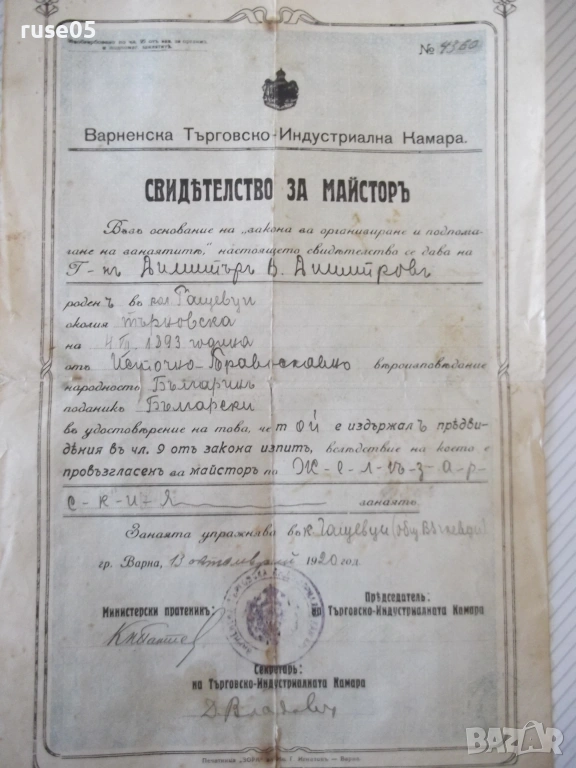 ruse05
№ 4360
Варненска Търговско-Индустриална Камара.
СВИДѢТЕЛСТВО ЗА МАЙСТОРЪ
Възъ основание на „закона за организиране и подпома-
гане на занаятитѣ," настоящето свидѣтелство се дава на
Г-нъ Димитъръ В. Димитровъ
роденъ въ кол. Гащевци
околия търновска
на 4 III 1893 година
отъ Источно-Православно вѣроизповѣдание
народность Българинъ
поданикъ Български
въ удостовѣрение на това, че той е издържалъ прѣдви-
дѣния въ чл. 9 отъ закона изпитъ, вслѣдствие на което е
провъзгласенъ за майсторъ по Ж-е-л-ѣ-з-а-р-
с-к-и-я занаятъ.
Занаята упражнява въ к. Гащевци
гр. Варна, 13 октомврий 1920 год.
Министерски пратеникъ:
Прѣдседатель:
на Търговско-Индустриалната Камара
Секретарь:
на Търговско-Индустриалната Камара
Д Владович
Печатница
Варна
BAZAR
.bg